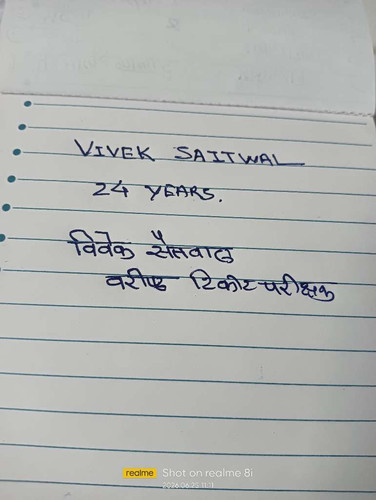 VIVEK SAITWAL
24 YEARS.
विवेक सैतवाल
वरीष्ठ टिकीट परीक्षक
realme Shot on realme 8i
2026.06.23 11:11